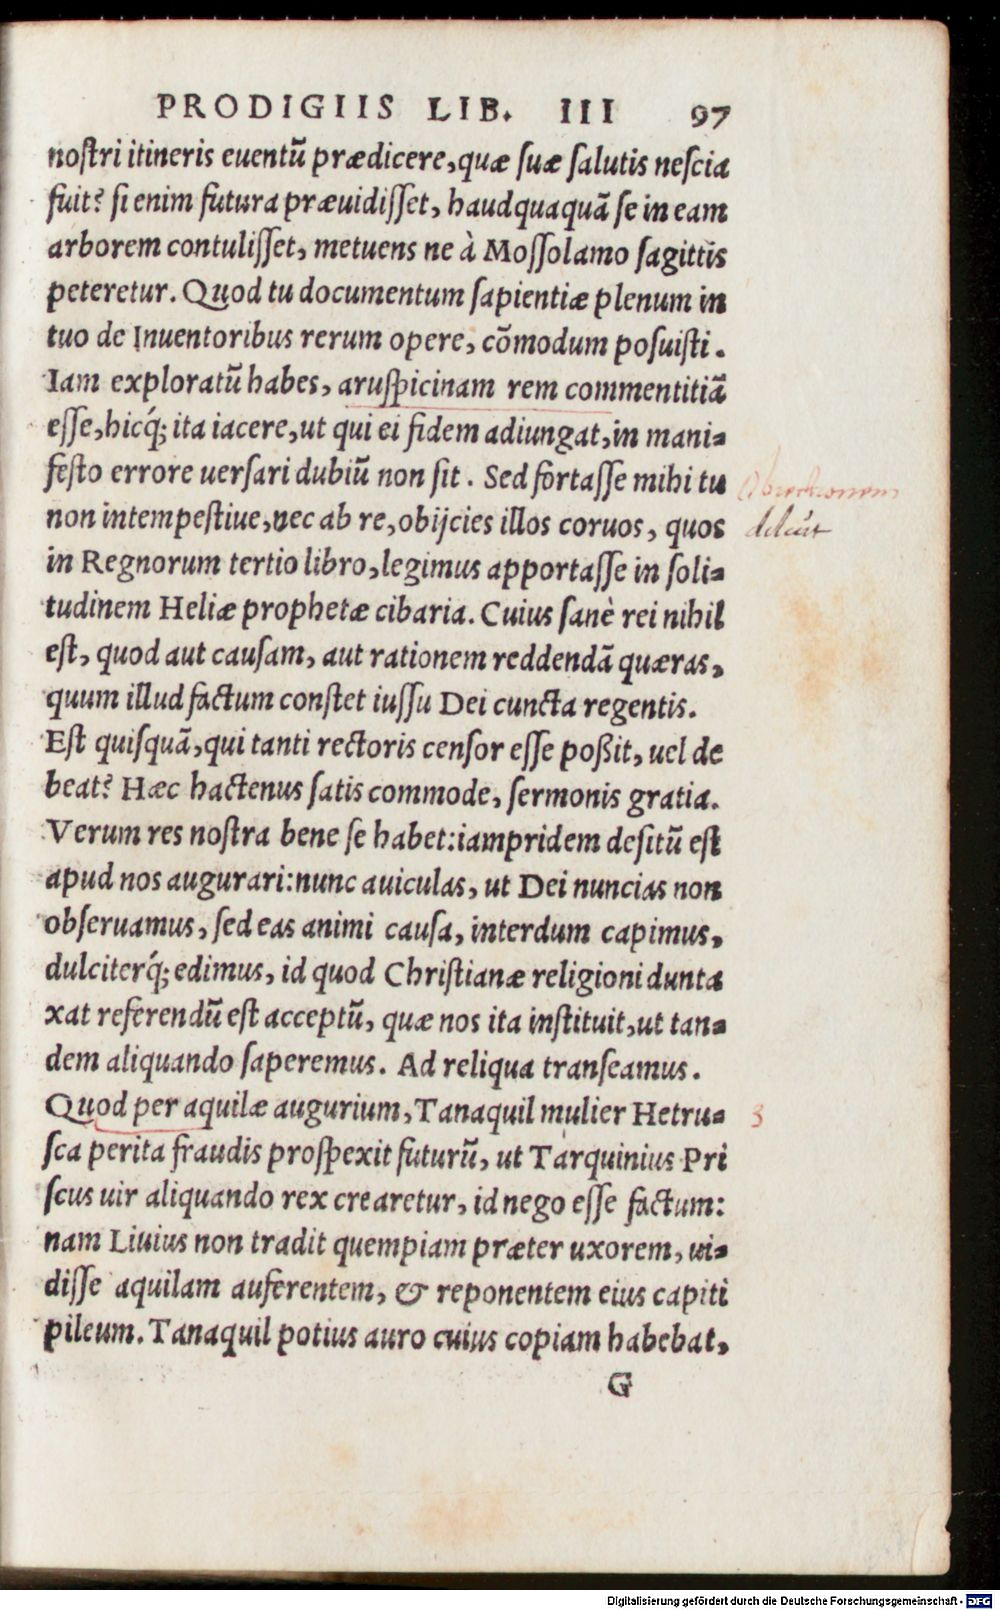 PRODIGIIS LIB. III 97
noſtri itineris euentũ prædicere, quæ ſuæ ſalutis neſcia
fuit? ſi enim futura præuidiſſet, haudquaquã ſe in eam
arborem contuliſſet, metuens ne à Moſſolamo ſagittis
peteretur. Quod tu documentum ſapientiæ plenum in
tuo de Inuentoribus rerum opere, cõmodum poſuiſti.
Iam exploratũ habes, aruſpicinam rem commentitiã
eſſe, hicq́; ita iacere, ut qui ei fidem adiungat, in mani-
feſto errore uerſari dubiũ non ſit. Sed fortaſſe mihi tu
non intempeſtiue, nec ab re, obijcies illos coruos, quos
in Regnorum tertio libro, legimus apportaſſe in ſoli-
tudinem Heliæ prophetæ cibaria. Cuius ſanè rei nihil
eſt, quod aut cauſam, aut rationem reddendã quæras,
quum illud factum conſtet iuſſu Dei cuncta regentis.
Eſt quiſquã, qui tanti rectoris cenſor eſſe poßit, uel de
beat? Hæc hactenus ſatis commode, ſermonis gratia.
Verum res noſtra bene ſe habet: iampridem deſitũ eſt
apud nos augurari: nunc auiculas, ut Dei nuncias non
obſeruamus, ſed eas animi cauſa, interdum capimus,
dulciterq́; edimus, id quod Chriſtianæ religioni dunta
xat referendũ eſt acceptũ, quæ nos ita inſtituit, ut tan-
dem aliquando ſaperemus. Ad reliqua tranſeamus.
Quod per aquilæ augurium, Tanaquil mulier Hetru- 3
ſca perita fraudis proſpexit futurũ, ut Tarquinius Pri
ſcus uir aliquando rex crearetur, id nego eſſe factum:
nam Liuius non tradit quempiam præter uxorem, ui-
diſſe aquilam auferentem, & reponentem eius capiti
pileum. Tanaquil potius auro cuius copiam habebat,
G
Digitalisierung gefördert durch die Deutsche Forschungsgemeinschaft - DFG